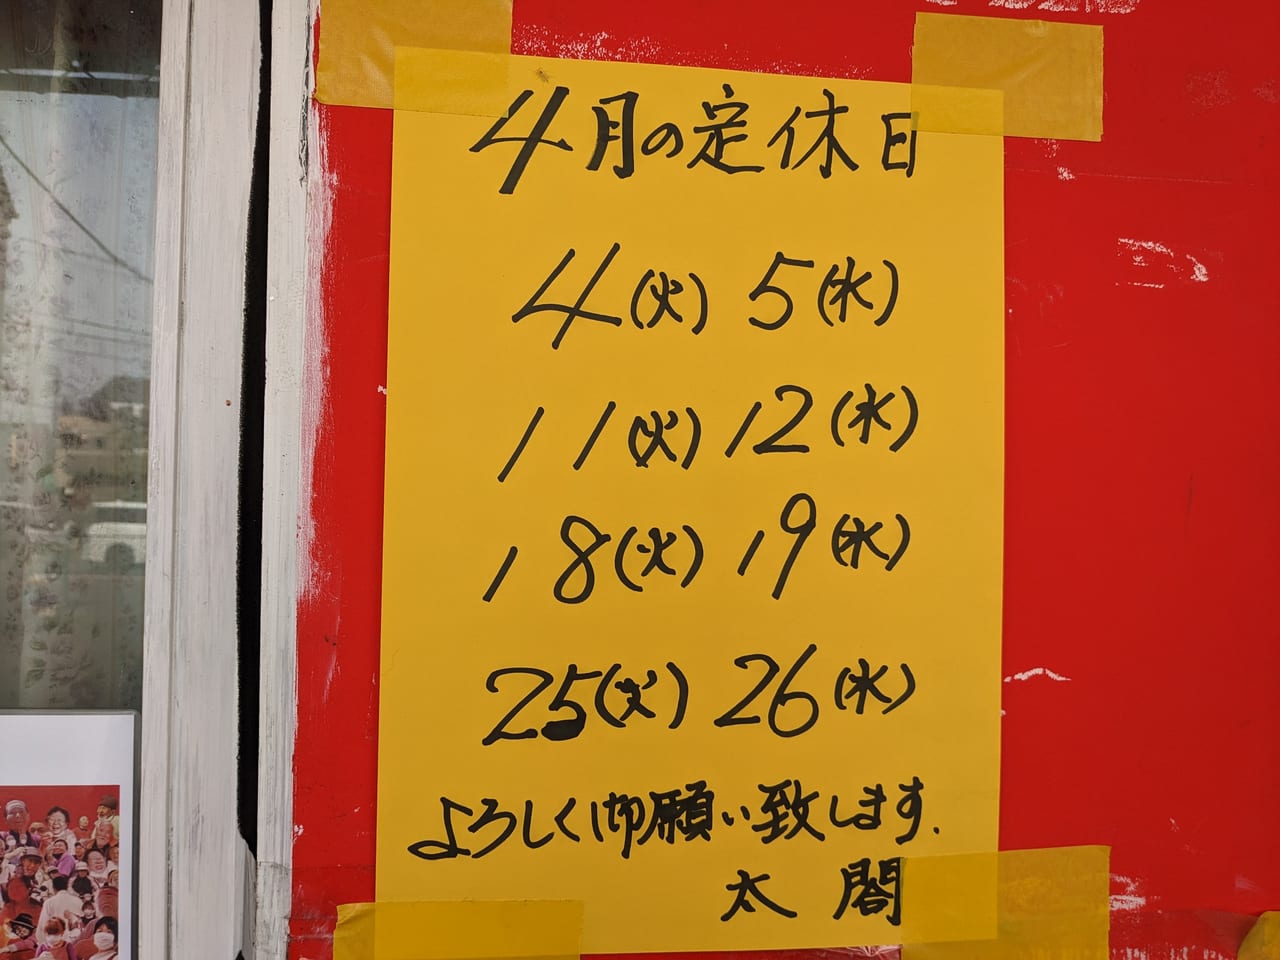 4月の定休日
4(火) 5(水)
11(火) 12(水)
18(火) 19(水)
25(火) 26(水)
よろしく御願い致します.
太閤